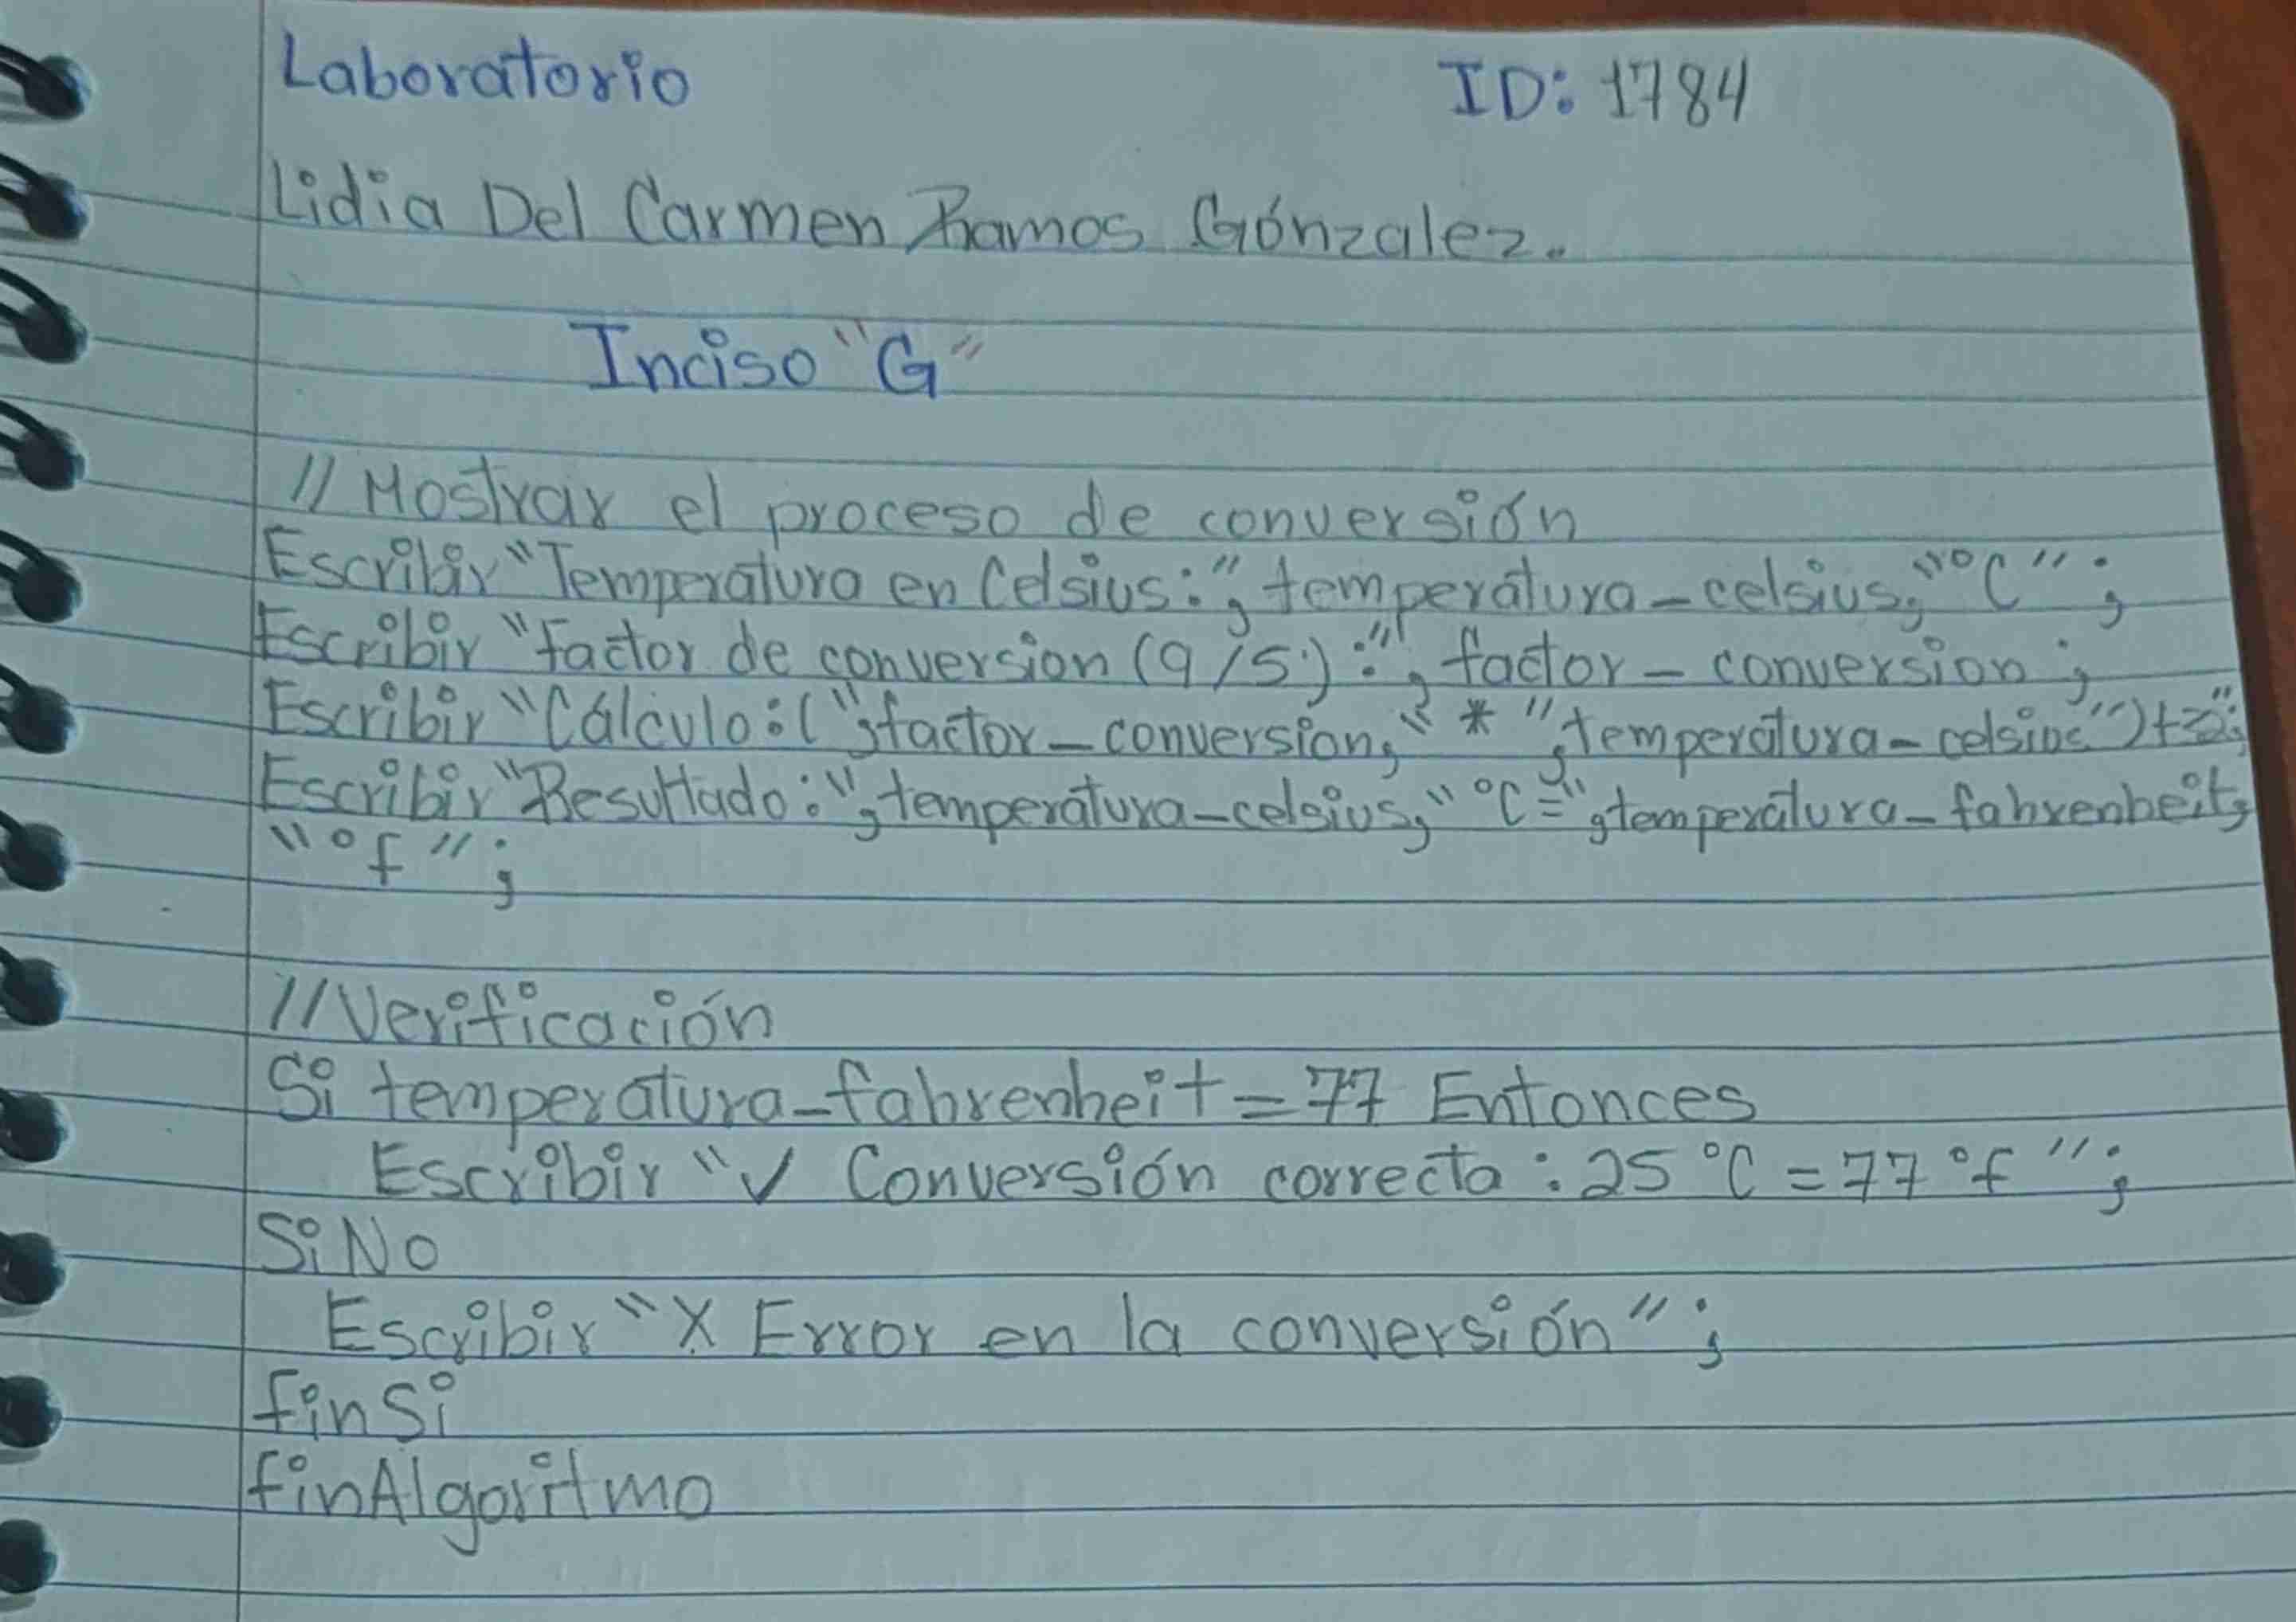 Laboratorio ID: 1784
Lidia Del Carmen Ramos Gónzalez.
Inciso "G"
// Mostrar el proceso de conversión
Escribir "Temperatura en Celsius:", temperatura_celsius, "°C";
Escribir "factor de conversion (9/5):", factor_conversion;
Escribir "Cálculo: (", factor_conversion, " * ", temperatura_celsius ")+
Escribir "Resultado:", temperatura_celsius, "°C=", temperatura_fahrenheit,
"°f";
//Verificación
Si temperatura_fahrenheit = 77 Entonces
Escribir "✓ Conversión correcta: 25 °C = 77 °f";
SiNo
Escribir "X Error en la conversión";
finSi
finAlgoritmo